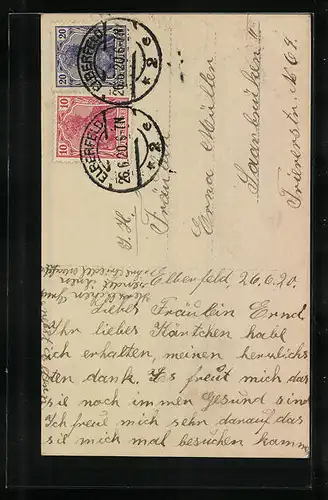 20
20
10
10
ELBERFELD
26.6.20.6-7N
* 2 e
ELBERFELD
26.6.20.6-7N
* 2 e
I. H.
Fräulein
Erna Müller
Saarbrücken II
Triererstr. No 69.
Elberfeld, 26.6.20.
Liebes Fräulein Erna
Ihr liebes Kärtchen habe
ich erhalten, meinen herrlichs
ten dank. Es freut mich das
sie noch immer Gesund sind
Ich freue mich sehn darauf das
sie mich mal besuchen kamme